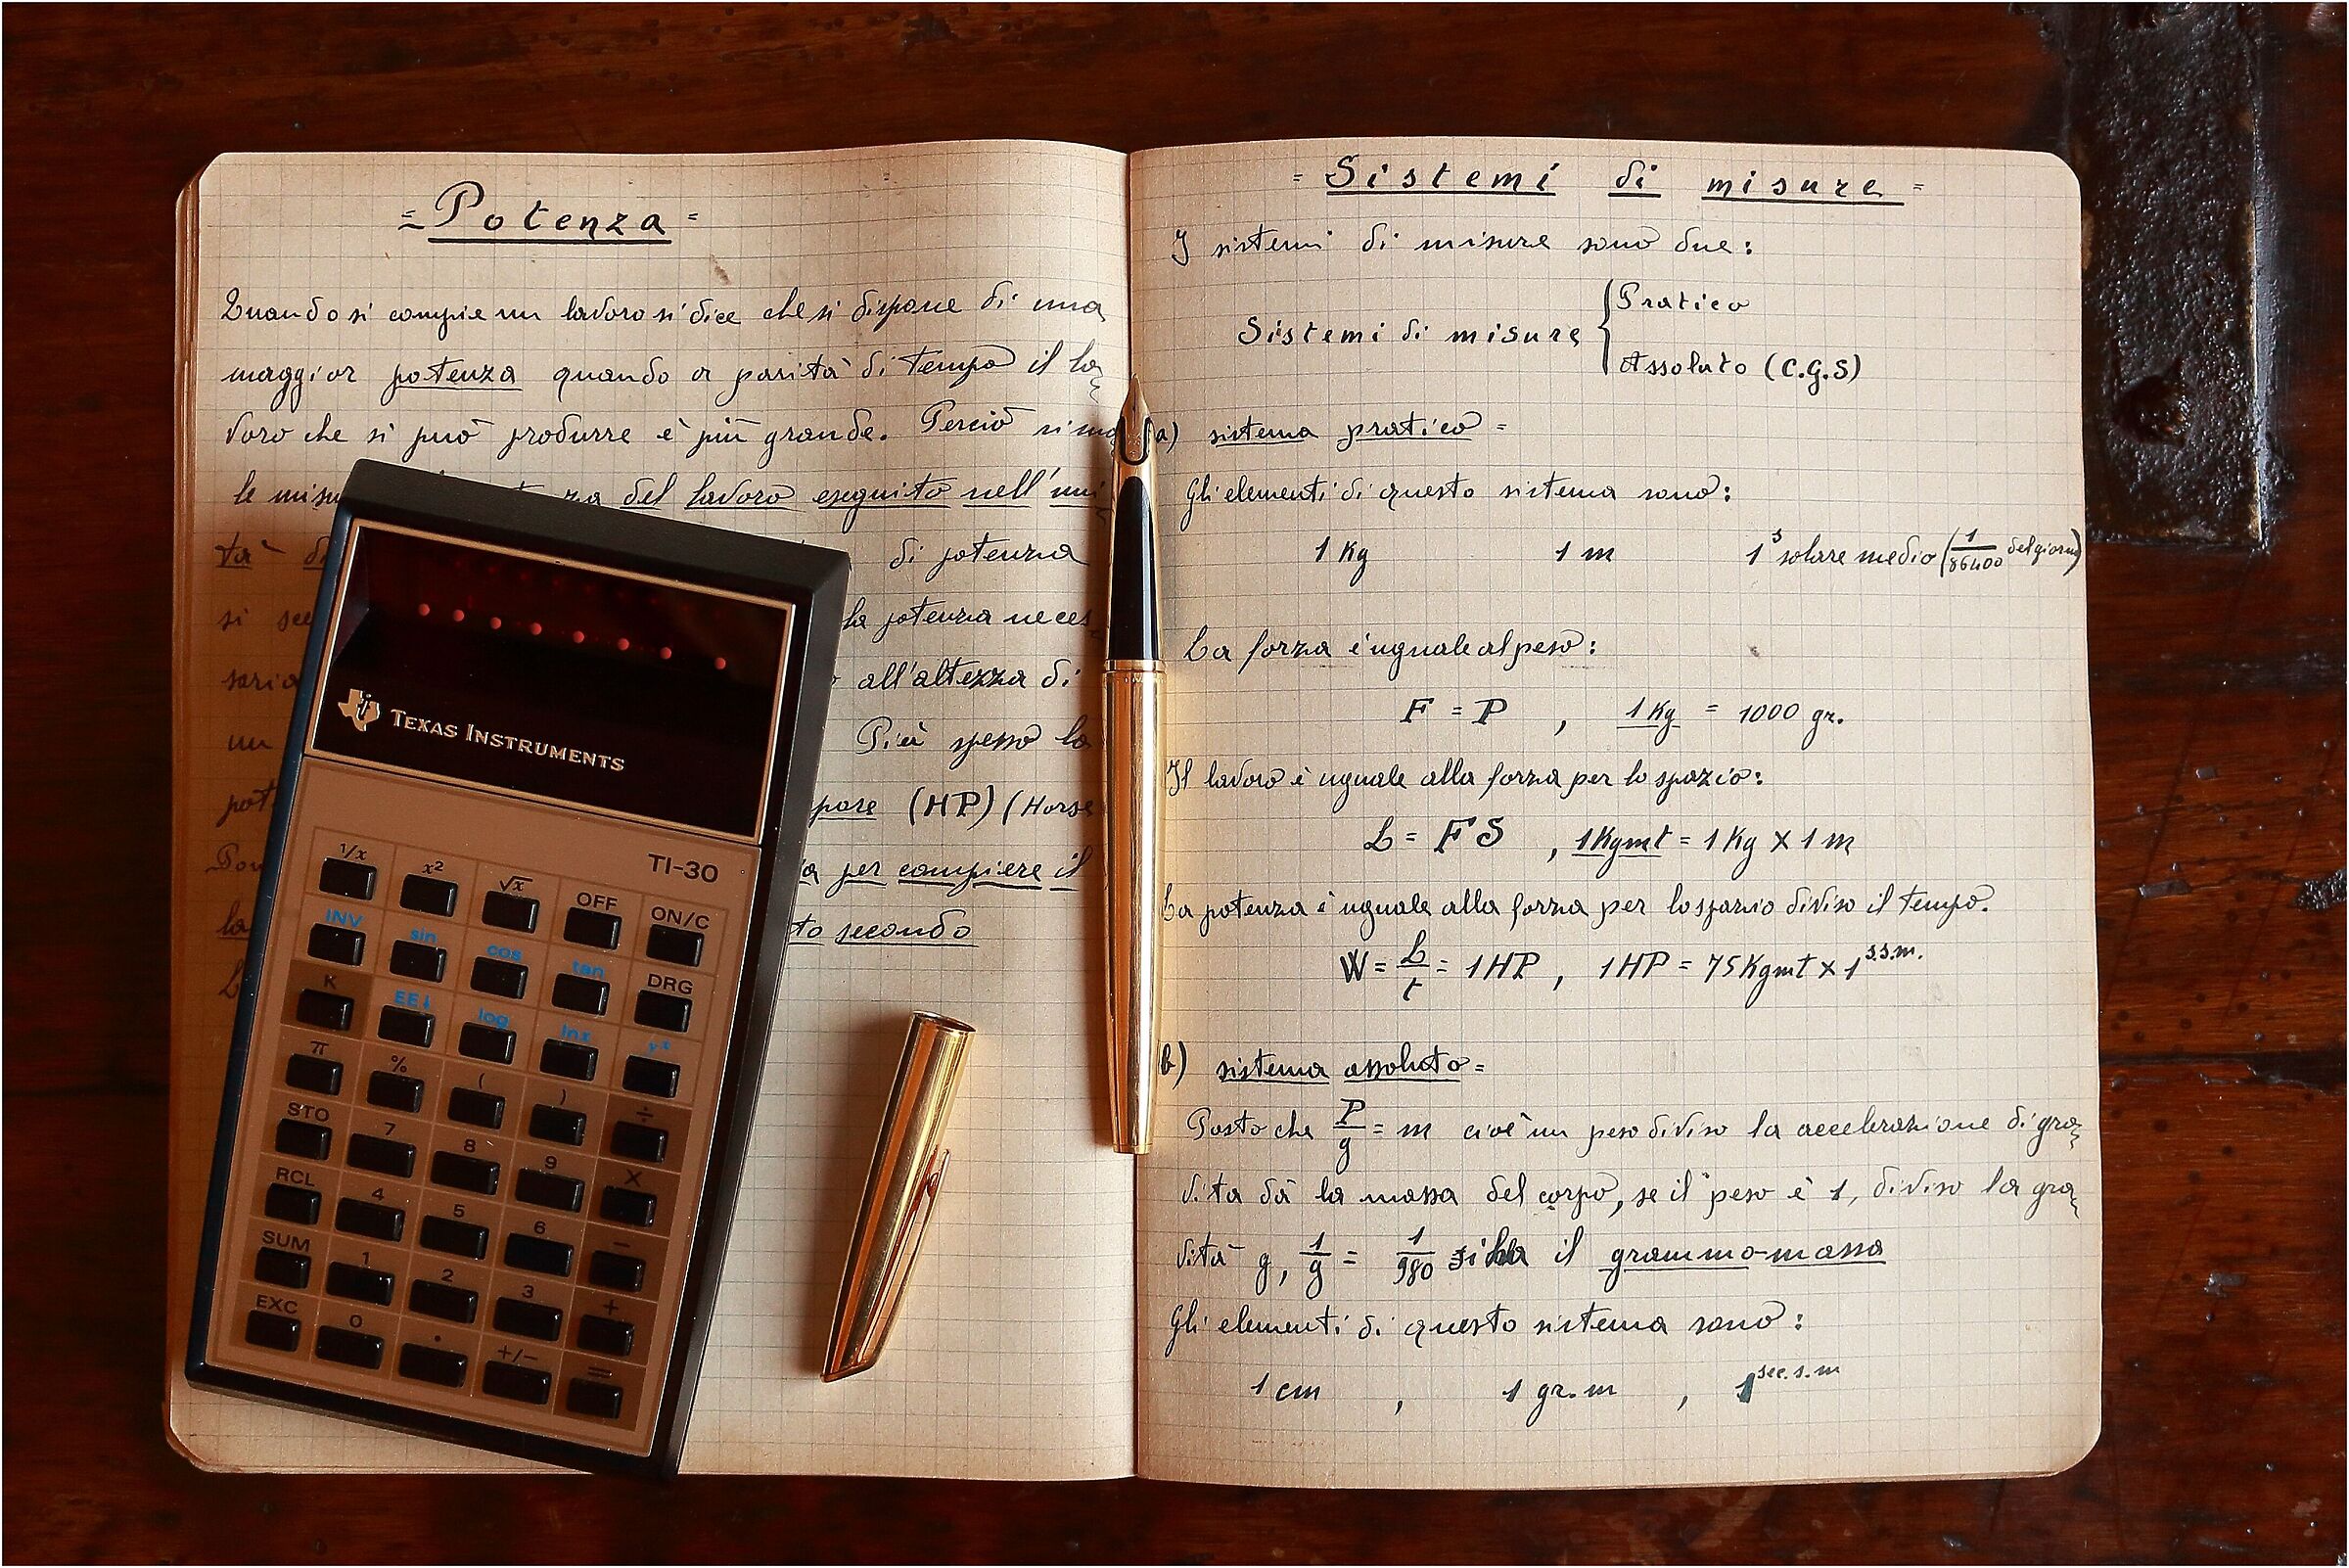 = Potenza =
Quando si compie un lavoro si dice che si dispone di una
maggior potenza quando a parità di tempo il la=
voro che si può produrre è più grande. Perciò
le del lavoro eseguito nell'uni=
tà di potenza
si la potenza neces=
saria all'altezza di
un Più spesso la
(HP) (Horse
per compiere il
secondo
TEXAS INSTRUMENTS
TI-30
1/x x² √x OFF ON/C
INV sin cos tan DRG
K EE↓ log lnx yˣ
π % ( ) ÷
STO 7 8 9 X
RCL 4 5 6 −
SUM 1 2 3 +
EXC 0 . +/− =
= Sistemi di misure =
I sistemi di misure sono due:
Sistemi di misure { Pratico
Assoluto (C.G.S)
a) sistema pratico =
Gli elementi di questo sistema sono:
1 Kg 1 m 1ˢ solare medio (1/86400 del giorno)
La forza è uguale al peso:
F = P , 1 Kg = 1000 gr.
Il lavoro è uguale alla forza per lo spazio:
L = F S , 1 Kgmt = 1 Kg X 1 m
La potenza è uguale alla forza per lo spazio diviso il tempo.
W = L/t = 1 HP , 1 HP = 75 Kgmt x 1 s.s.m.
b) sistema assoluto =
Posto che P/g = m cioè un peso diviso la accelerazione di gra=
vità dà la massa del corpo, se il peso è 1, diviso la gra=
vità g, 1/g = 1/980 si ha il grammo-massa
Gli elementi di questo sistema sono:
1 cm , 1 gr. m , 1 sec. s. m